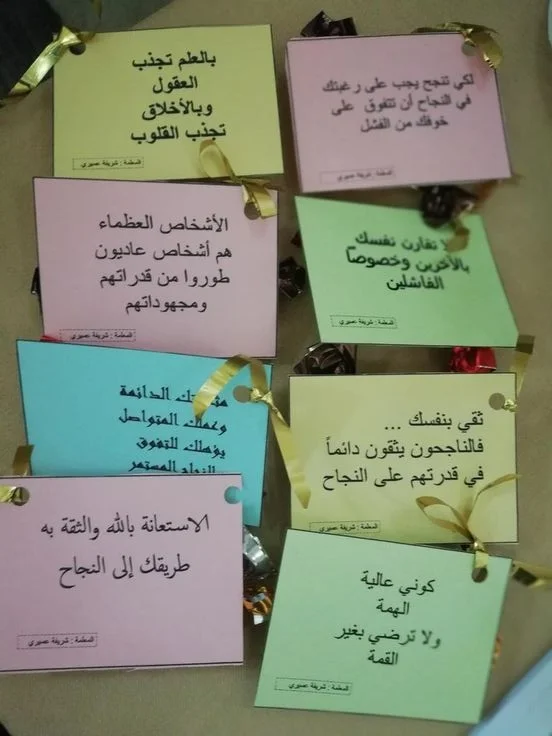 لكي تنجح يجب على رغبتك
في النجاح أن تتفوق على
خوفك من الفشل
المعلمة : شريفة عسيري
بالعلم تجذب
العقول
وبالأخلاق
تجذب القلوب
المعلمة : شريفة عسيري
لا تقارن نفسك
بالآخرين وخصوصاً
الفاشلين
المعلمة : شريفة عسيري
الأشخاص العظماء
هم أشخاص عاديون
طوروا من قدراتهم
ومجهوداتهم
المعلمة : شريفة عسيري
ثقي بنفسك ...
فالناجحون يثقون دائماً
في قدرتهم على النجاح
المعلمة : شريفة عسيري
الدائمة
وعملك المتواصل
يؤهلك للتفوق
المستمر
كوني عالية
الهمة
ولا ترضي بغير
القمة
المعلمة : شريفة عسيري
الاستعانة بالله والثقة به
طريقك إلى النجاح
المعلمة : شريفة عسيري